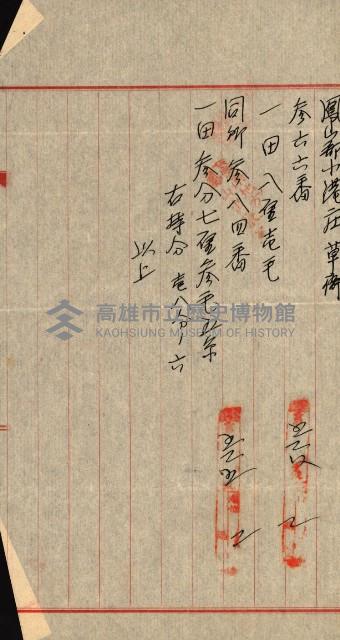 鳳山郡小港庄草衙
參六六番
一田八厘壱毛
同所參八四番
一田參分七厘參毛五糸
右持分壱八分ノ六
以上
高雄市立歷史博物館
KAOHSIUNG MUSEUM OF HISTORY